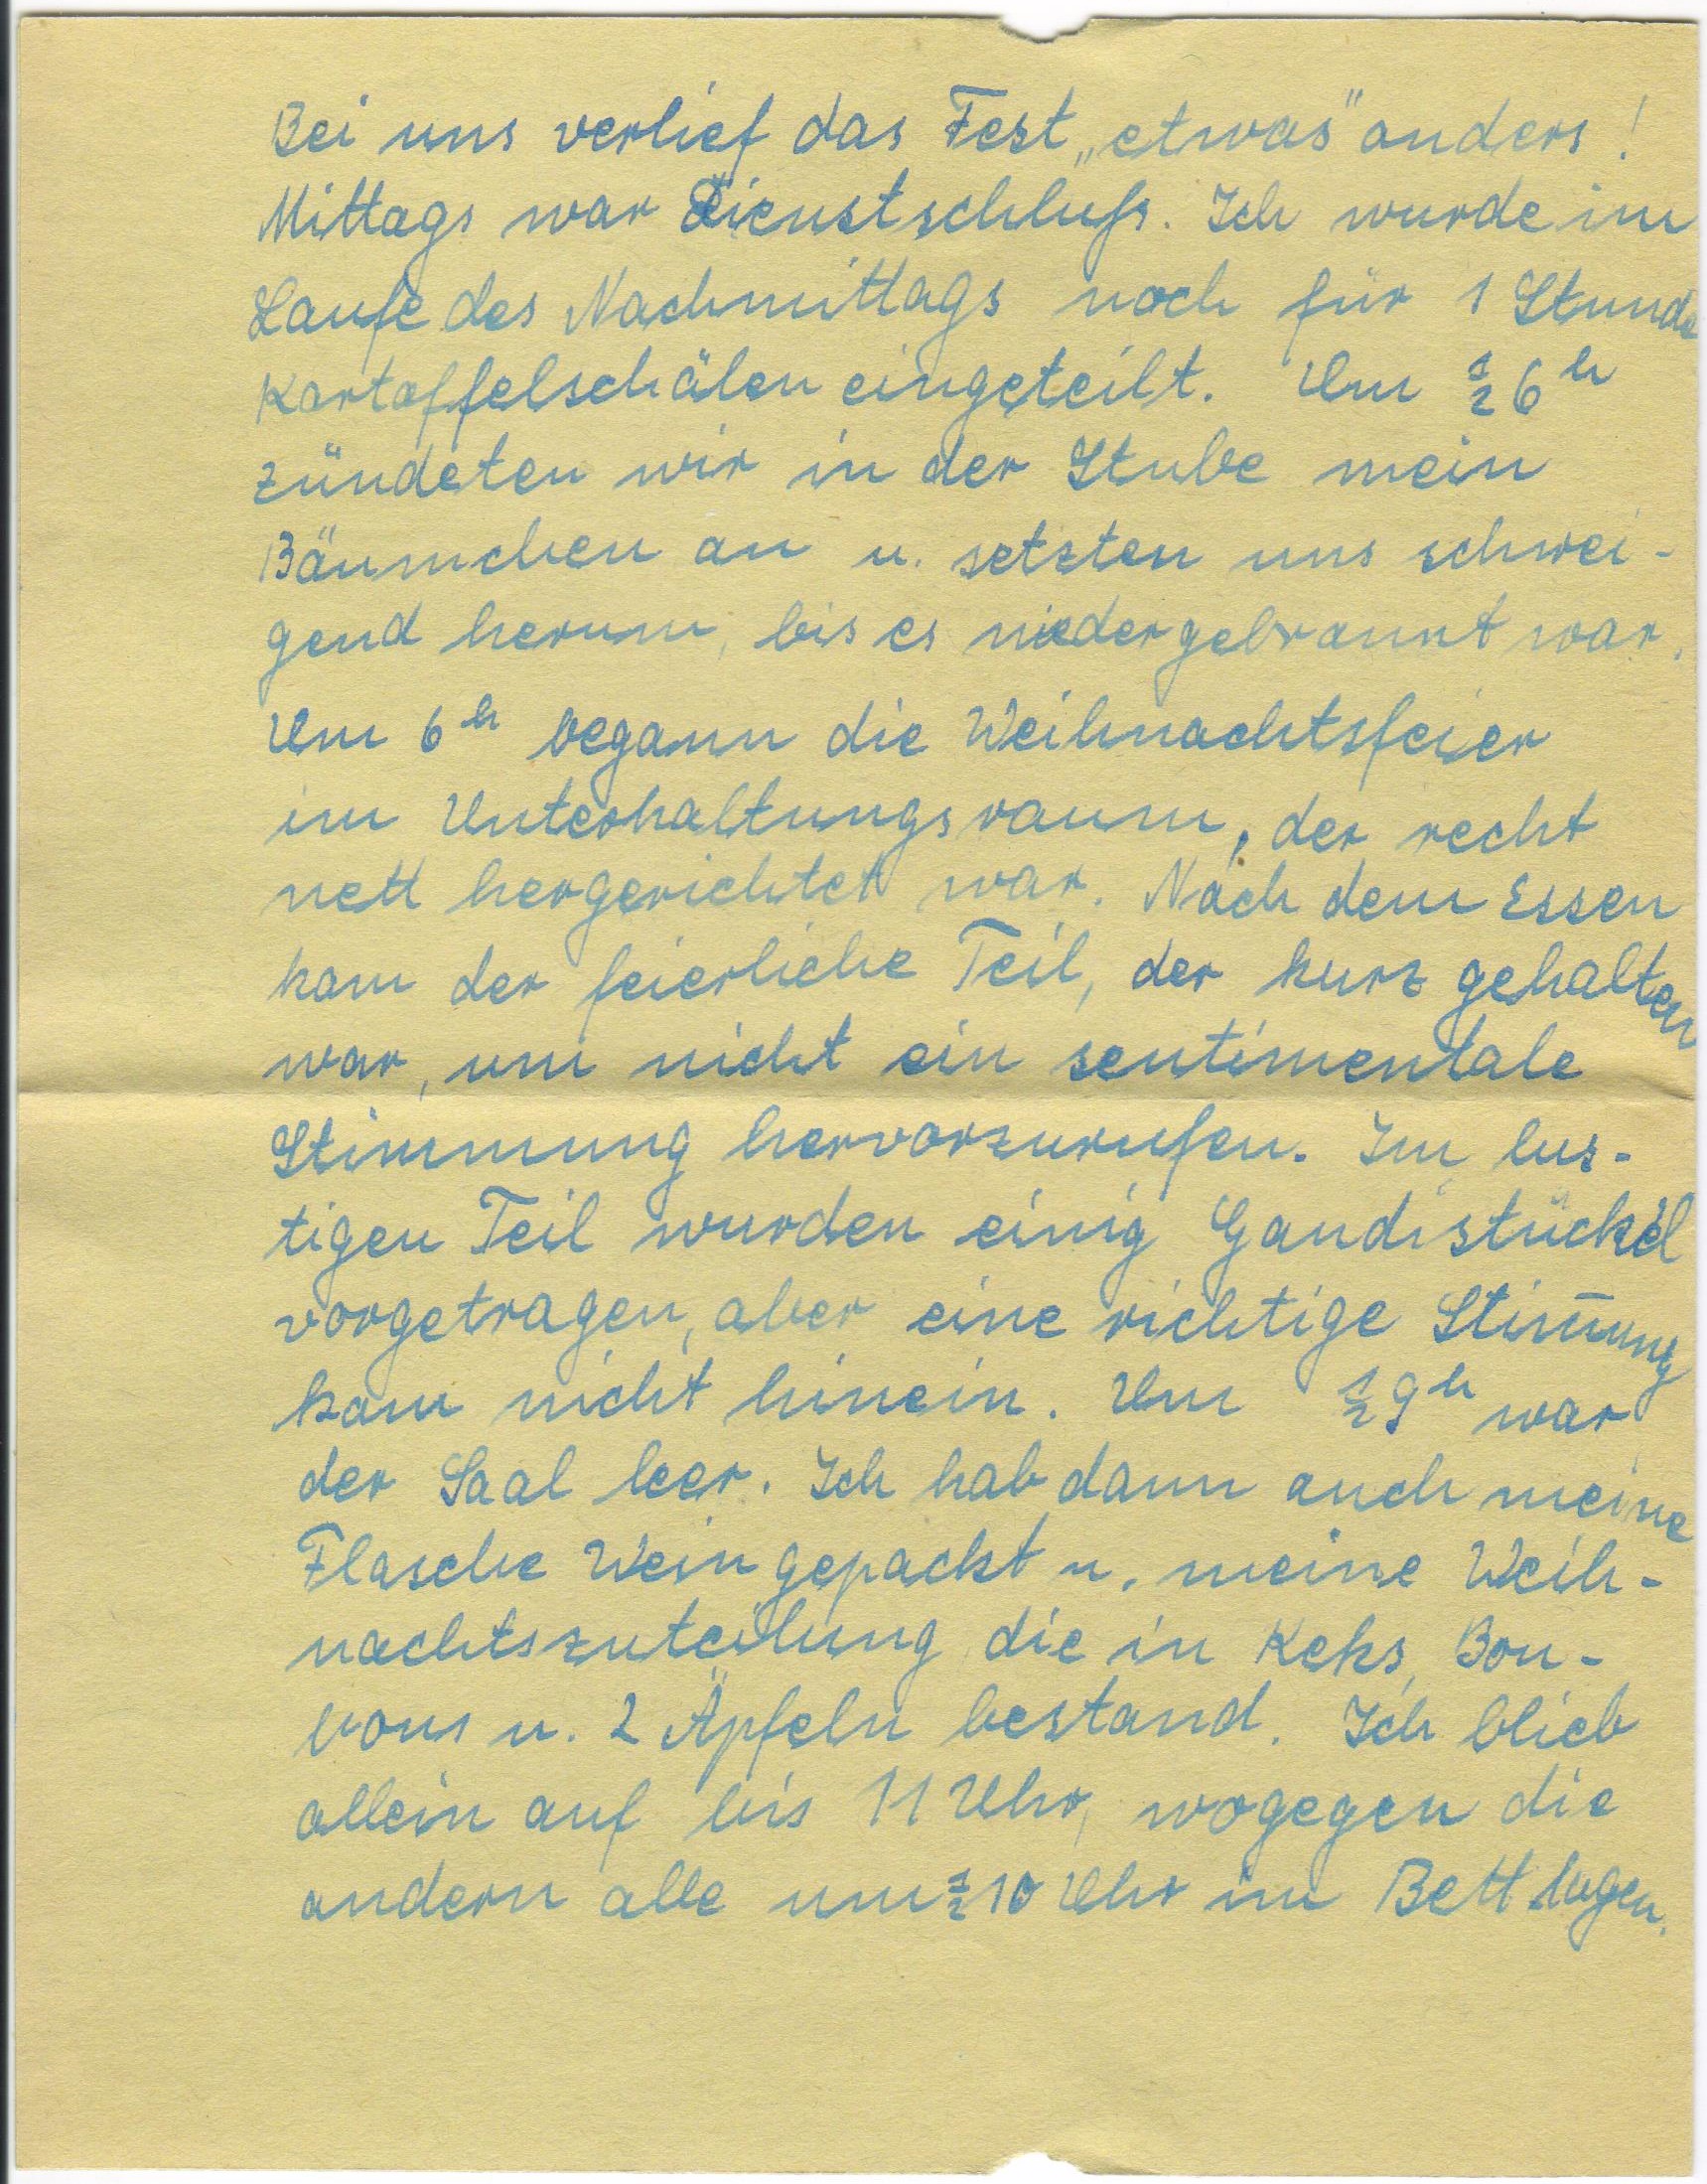 Bei uns verlief das Fest „etwas" anders!
Mittags war Dienstschluß. Ich wurde im
Laufe des Nachmittags noch für 1 Stunde
Kartoffelschälen eingeteilt. Um ½6ʰ
zündeten wir in der Stube mein
Bäumchen an u. setzten uns schwei-
gend herum, bis es niedergebrannt war.
Um 6ʰ begann die Weihnachtsfeier
im Unterhaltungsraum, der recht
nett hergerichtet war. Nach dem Essen
kam der feierliche Teil, der kurz gehalten
war, um nicht ein sentimentale
Stimmung hervorzurufen. Im lus-
tigen Teil wurden einig Gaudistückel
vorgetragen, aber eine richtige Stim̅ung
kam nicht hinein. Um ½9ʰ war
der Saal leer. Ich hab dann auch meine
Flasche Wein gepackt u. meine Weih-
nachtszuteilung die in Keks, Bon-
bons u. 2 Äpfeln bestand. Ich blieb
allein auf bis 11 Uhr, wogegen die
andern alle um ½10 Uhr im Bett lagen.